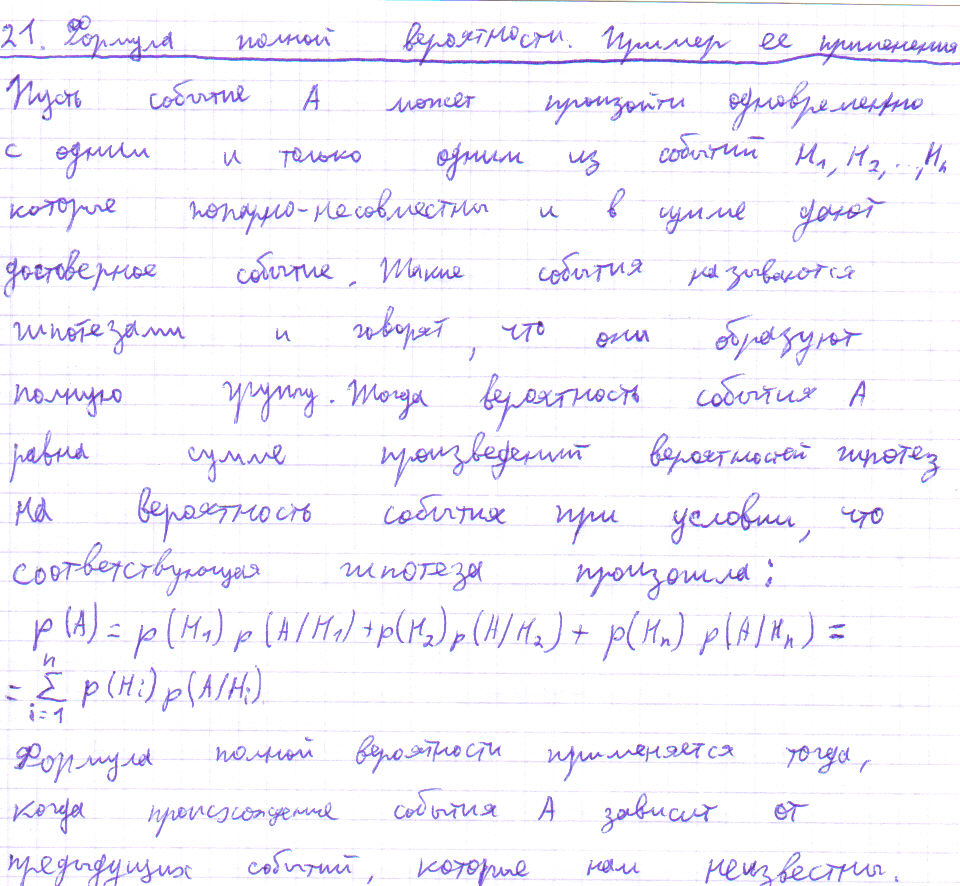 21. Формула полной вероятности. Пример ее применения
Пусть событие A может произойти одновременно
с одним и только одним из событий H₁, H₂, ..., Hₙ
которые попарно-несовместны и в сумме дают
достоверное событие. Такие события называются
гипотезами и говорят, что они образуют
полную группу. Тогда вероятность события A
равна сумме произведений вероятностей гипотез
на вероятность события при условии, что
соответствующая гипотеза произошла:
p(A) = p(H₁) p(A/H₁) + p(H₂) p(A/H₂) + p(Hₙ) p(A/Hₙ) =
= ∑ⁿᵢ₌₁ p(Hᵢ) p(A/Hᵢ)
Формула полной вероятности применяется тогда,
когда происхождение события A зависит от
предыдущих событий, которые нам неизвестны.